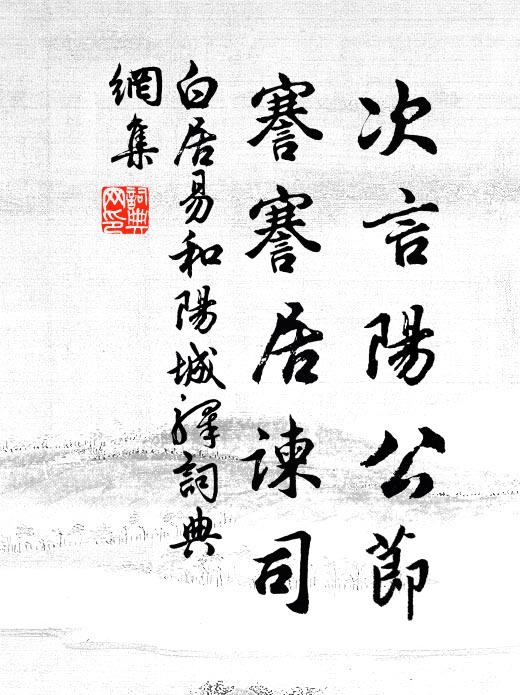 次言陽公節
謇謇居諫司
白居易和陽城驛詞典
網集
詞典网印